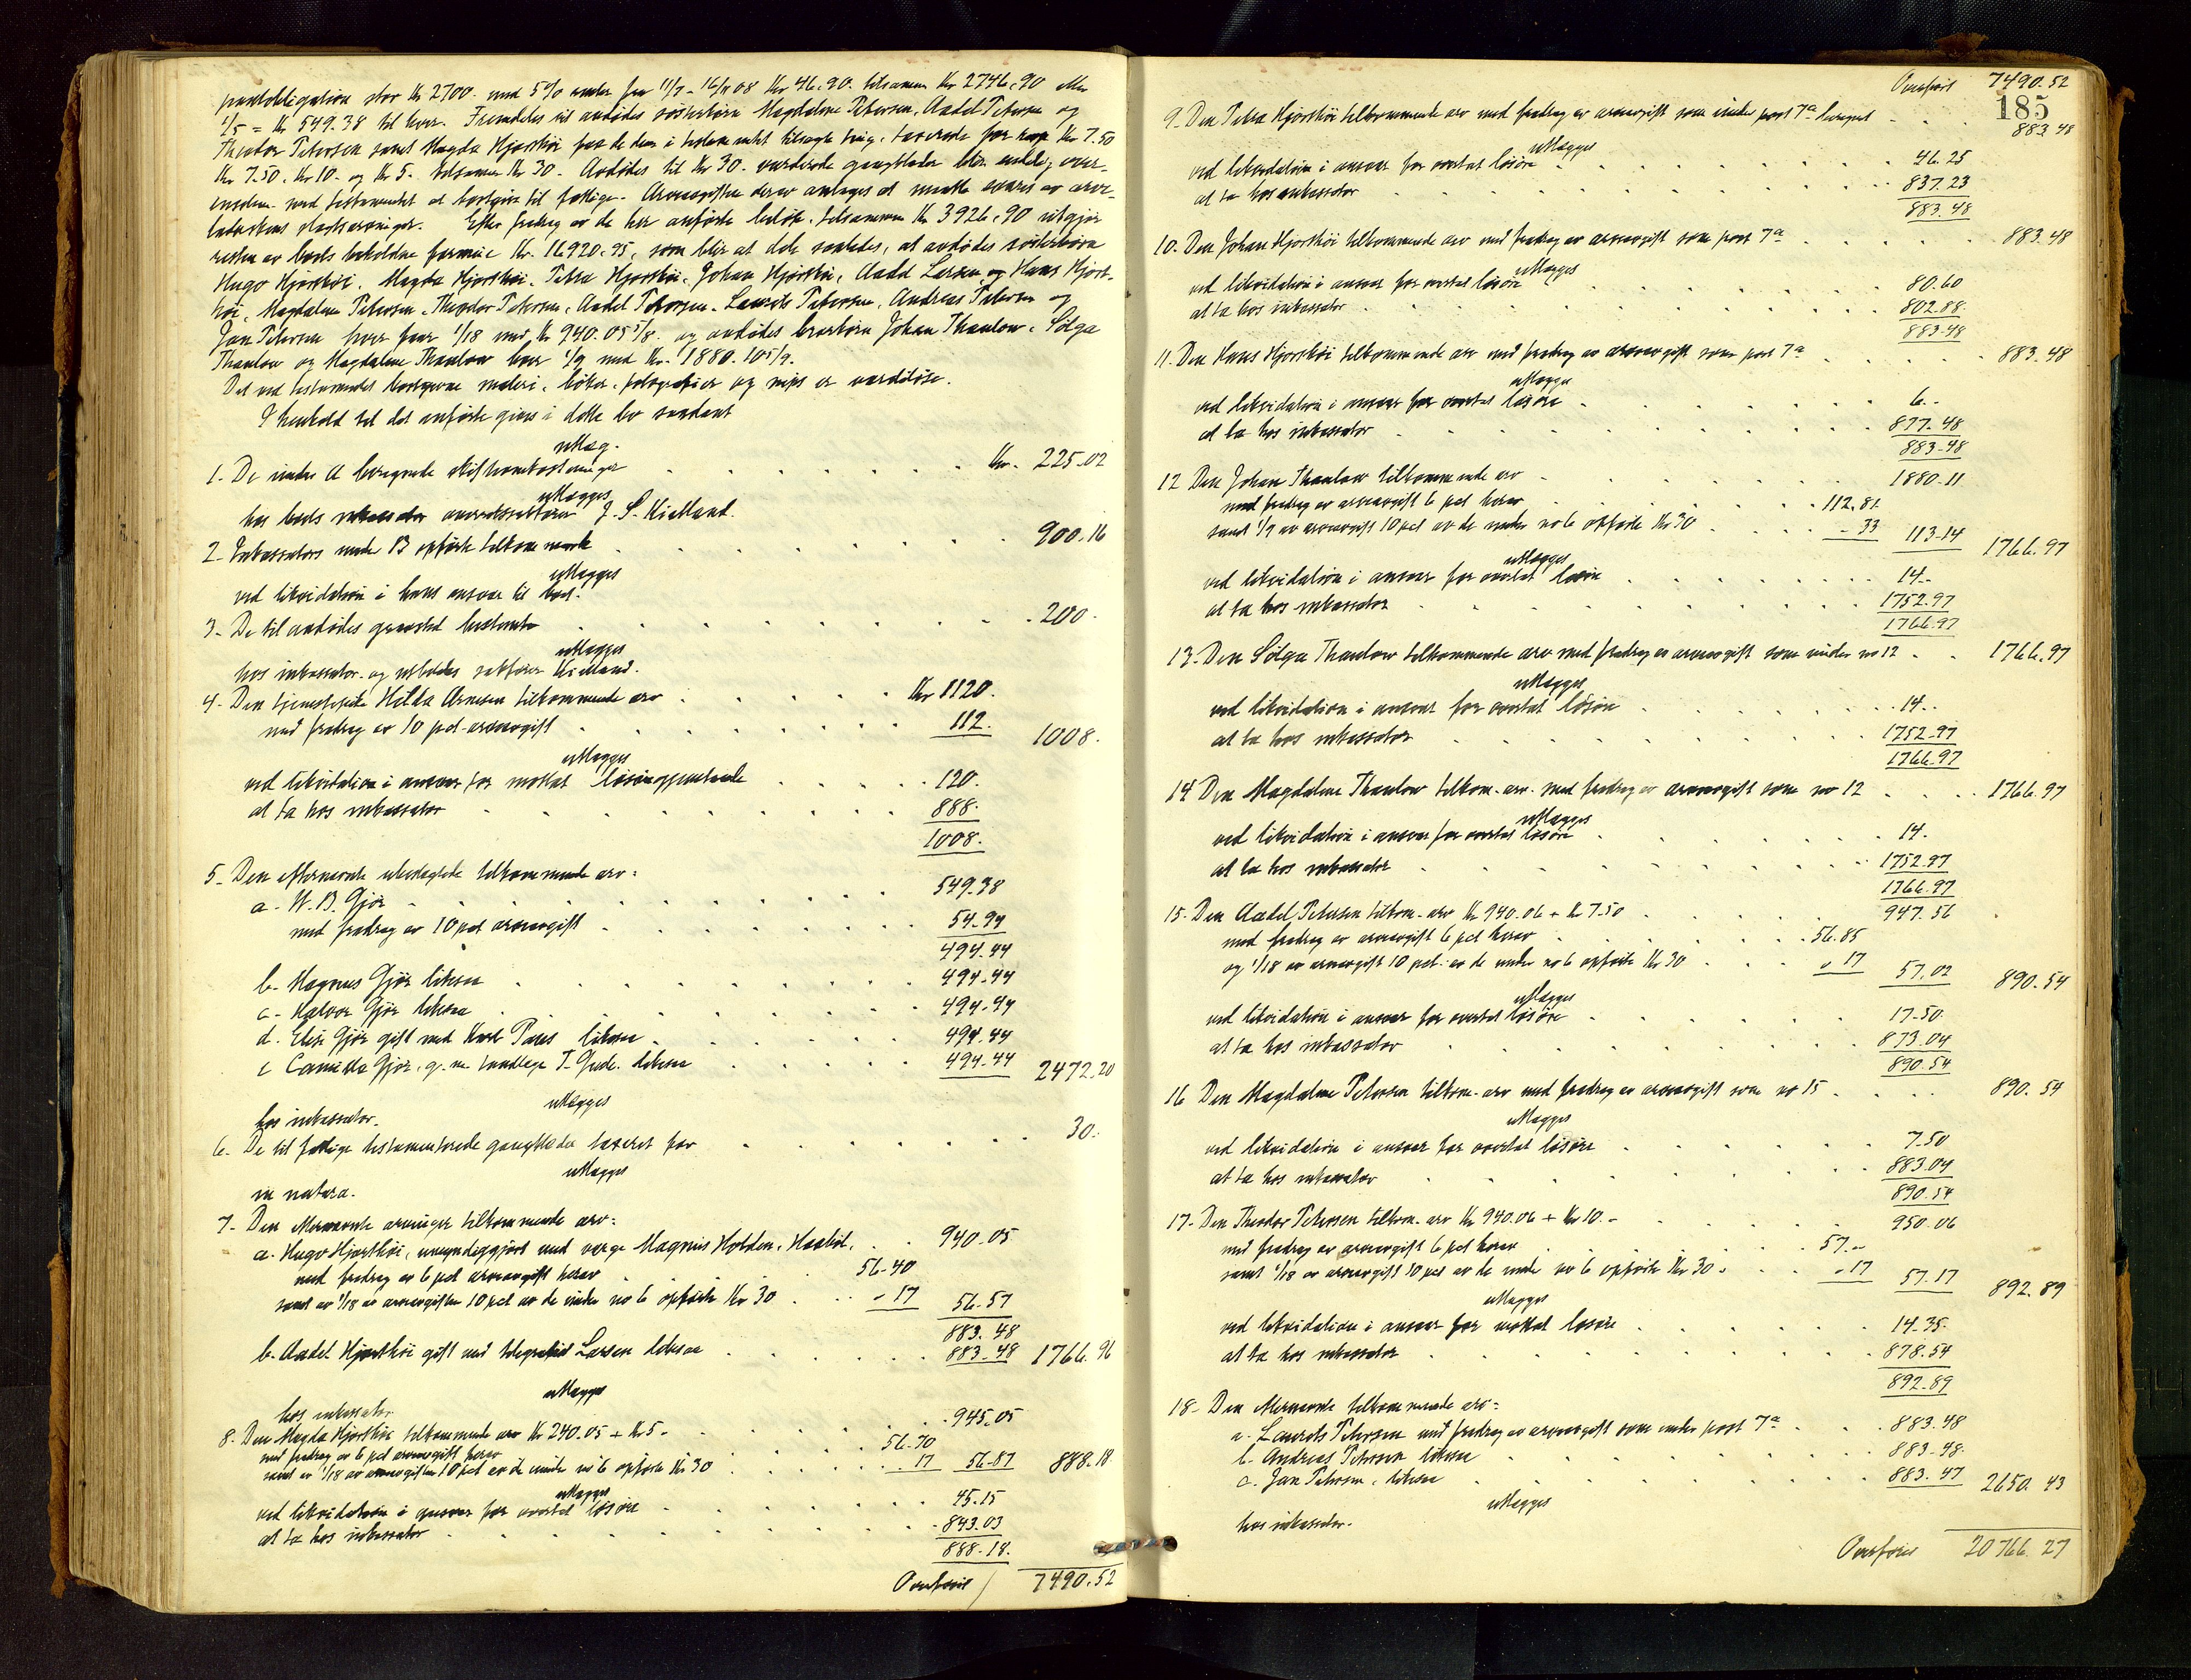 pantobligation stor Kr 2700 med 5% renter fra 11/7 - 16/11 08 Kr 46.90. tilsammen Kr 2746.90 eller
1/5 = Kr 549.38 til hver. Fremdeles vil avdødes søsterbørn Magdalene Petersen, Aadel Petersen og
Theodor Petersen samt Magda Hjorthøi faa de dem i testamentet tillagte ting, taxerede for Kr 7.50
Kr 7.50, Kr 10. og Kr 5. tilsammen Kr 30. Avdødes til Kr 30. vurderede gangklæder blir endelig over-
ensstem. med testamentet at bortgive til fattige. Arveavgiften derav antages at maatte svares av arve-
laderskens slegtsarvinger. Efter fradrag av de her anførte beløp, tilsammen Kr 3926.90 utgjør
resten av boets beholdne formue Kr. 16920.95, som blir at dele saaledes, at avdødes søsterbørn
Hugo Hjorthøi, Magda Hjorthøi, Petra Hjorthøi, Johan Hjorthøi, Aadel Larsen og Hans Hjort-
høi, Magdalene Petersen, Theodor Petersen, Aadel Petersen, Laurits Petersen, Andreas Petersen og
Jan Petersen hver faar 1/18 med Kr 940.05 5/8 og avdødes brorbørn Johan Thaulow, Sølga
Thaulow og Magdalene Thaulow hver 1/9 med Kr. 1880.10 5/9.
Det ved testamentet bortgivne maleri, bøker, fotografier og nips er værdiløse.
I henhold til det anførte gives i dette bo saadant
utlæg.
1. De under A beregnede skifteomkostninger . . . Kr. 225.02
utlægges
hos boets inkassator overretssakfører J. S. Kielland.
2. Inkassators under B opførte tilkommende . . . 900.16
utlægges
ved likvidation i hans ansvar til boet.
3. De til avdødes gravsted bestemte . . . 200.
utlægges
hos inkassator og utlodes sakfører Kielland.
4. Den tjenestepike Hilda Arnesen tilkommende arv . . . Kr 1120.
med fradrag av 10 pct arveavgift . . . 112. 1008.
utlægges
ved likvidation i ansvar for mottat løsøregjenstande . . . 120.
at ta hos inkassator . . . 888.
1008.
5. Den efternævnte utenslegtede tilkommende arv:
a. W. B. Gjør . . . 549.38
med fradrag av 10 pct arveavgift . . . 54.94
494.44
b. Magnus Gjør likesaa . . . 494.44
c. Halvor Gjør likesaa . . . 494.44
d. Elise Gjør gift med Karl Paus likesaa . . . 494.44
e Camilla Gjør, g. m. tandlæge T. Gude. likesaa . . . 494.44 2472.20
utlægges
hos inkassator.
6. De til fattige testamenterede gangklæder taxeret for . . . 30.
utlægges
in natura.
7. Den efternævnte arvinger tilkommende arv:
a. Hugo Hjorthøi, umyndiggjort med verge Magnus Holden, Haabøl, . . 940.05
med fradrag av 6 pct arveavgift herav . . . 56.40
samt av 1/18 av arveavgiften 10 pct av de under no 6 opførte Kr 30 . . . - 17 56.57
883.48
b. Aadel Hjorthøi gift med telegrafist Larsen likesaa . . . 883.48 1766.96
utlægges
hos inkassator
8. Den Magda Hjorthøi tilkommende arv Kr 940.05 + Kr 5. . . . 945.05
med fradrag av 6 pct arveavgift herav . . . 56.70
samt av 1/18 av arveavgiften 10 pct av de under no 6 opførte Kr 30 . . . 17 56.87 888.18
utlægges
ved likvidation i ansvar for overtat løsøre . . . 45.15
at ta hos inkassator . . . 843.03
888.18.
Overføres 7490.52
Overført 7490.52
185
9. Den Petra Hjorthøi tilkommende arv med fradrag av arveavgift som under post 7a beregnet . . . 883.48
utlægges
ved likvidation i ansvar for overtat løsøre . . . 46.25
at ta hos inkassator . . . 837.23
883.48
10. Den Johan Hjorthøi tilkommende arv med fradrag av arveavgift som post 7a . . . 883.48
utlægges
ved likvidation i ansvar for overtat løsøre . . . 80.60
at ta hos inkassator . . . 802.88.
883.48
11. Den Hans Hjorthøi tilkommende arv med fradrag av arveavgift som post 7a . . . 883.48
utlægges
ved likvidation i ansvar for overtat løsøre . . . 6.-
at ta hos inkassator . . . 877.48
883.48
12 Den Johan Thaulow tilkommende arv . . . 1880.11
med fradrag av arveavgift 6 pct herav . . . 112.81
samt 1/9 av arveavgift 10 pct av de under no 6 opførte Kr 30 . . . - 33 113.14 1766.97
utlægges
ved likvidation i ansvar for overtat løsøre . . . 14.-
at ta hos inkassator . . . 1752.97
1766.97
13. Den Sølga Thaulow tilkommende arv med fradrag av arveavgift som under no 12 . . 1766.97
utlægges
ved likvidation i ansvar for overtat løsøre . . . 14..
at ta hos inkassator . . . 1752.97
1766.97
14 Den Magdalene Thaulow tilkom. arv. med fradrag av arveavgift som no 12 . . . 1766.97
utlægges
ved likvidation i ansvar for overtat løsøre . . . 14.
at ta hos inkassator . . . 1752.97
1766.97
15. Den Aadel Petersen tilkom. arv Kr 940.06 + Kr 7.50 . . . 947.56
med fradrag av arveavgift 6 pct herav . . . 56.85
og 1/18 av arveavgift 10 pct. av de under no 6 opførte Kr 30 . . . " 17 57.02 890.54
utlægges
ved likvidation i ansvar for overtat løsøre . . . 17.50.
at ta hos inkassator . . . 873.04
890.54
16 Den Magdalene Petersen tilkom. arv med fradrag av arveavgift som no 15 . . . 890.54
utlægges
ved likvidation i ansvar for overtat løsøre . . . 7.50
at ta hos inkassator . . . 883.04
890.54
17. Den Theodor Petersen tilkom. arv Kr 940.06 + Kr 10.- . . . 950.06
med fradrag av arveavgift 6 pct herav . . . 57.-
samt 1/18 av arveavgift 10 pct av de under no 6 opførte Kr 30. . . . - 17 57.17 892.89
utlægges
ved likvidation i ansvar for mottat løsøre . . . 14.35.
at ta hos inkassator . . . 878.54
892.89
18. Den efternævnte tilkommende arv:
a. Laurits Petersen med fradrag av arveavgift som under post 7a . . . 883.48
b. Andreas Petersen likesaa . . . 883.48.
c. Jan Petersen, likesaa . . . 883.47 2650.43
utlægges
hos inkassator.
Overføres 20766.27